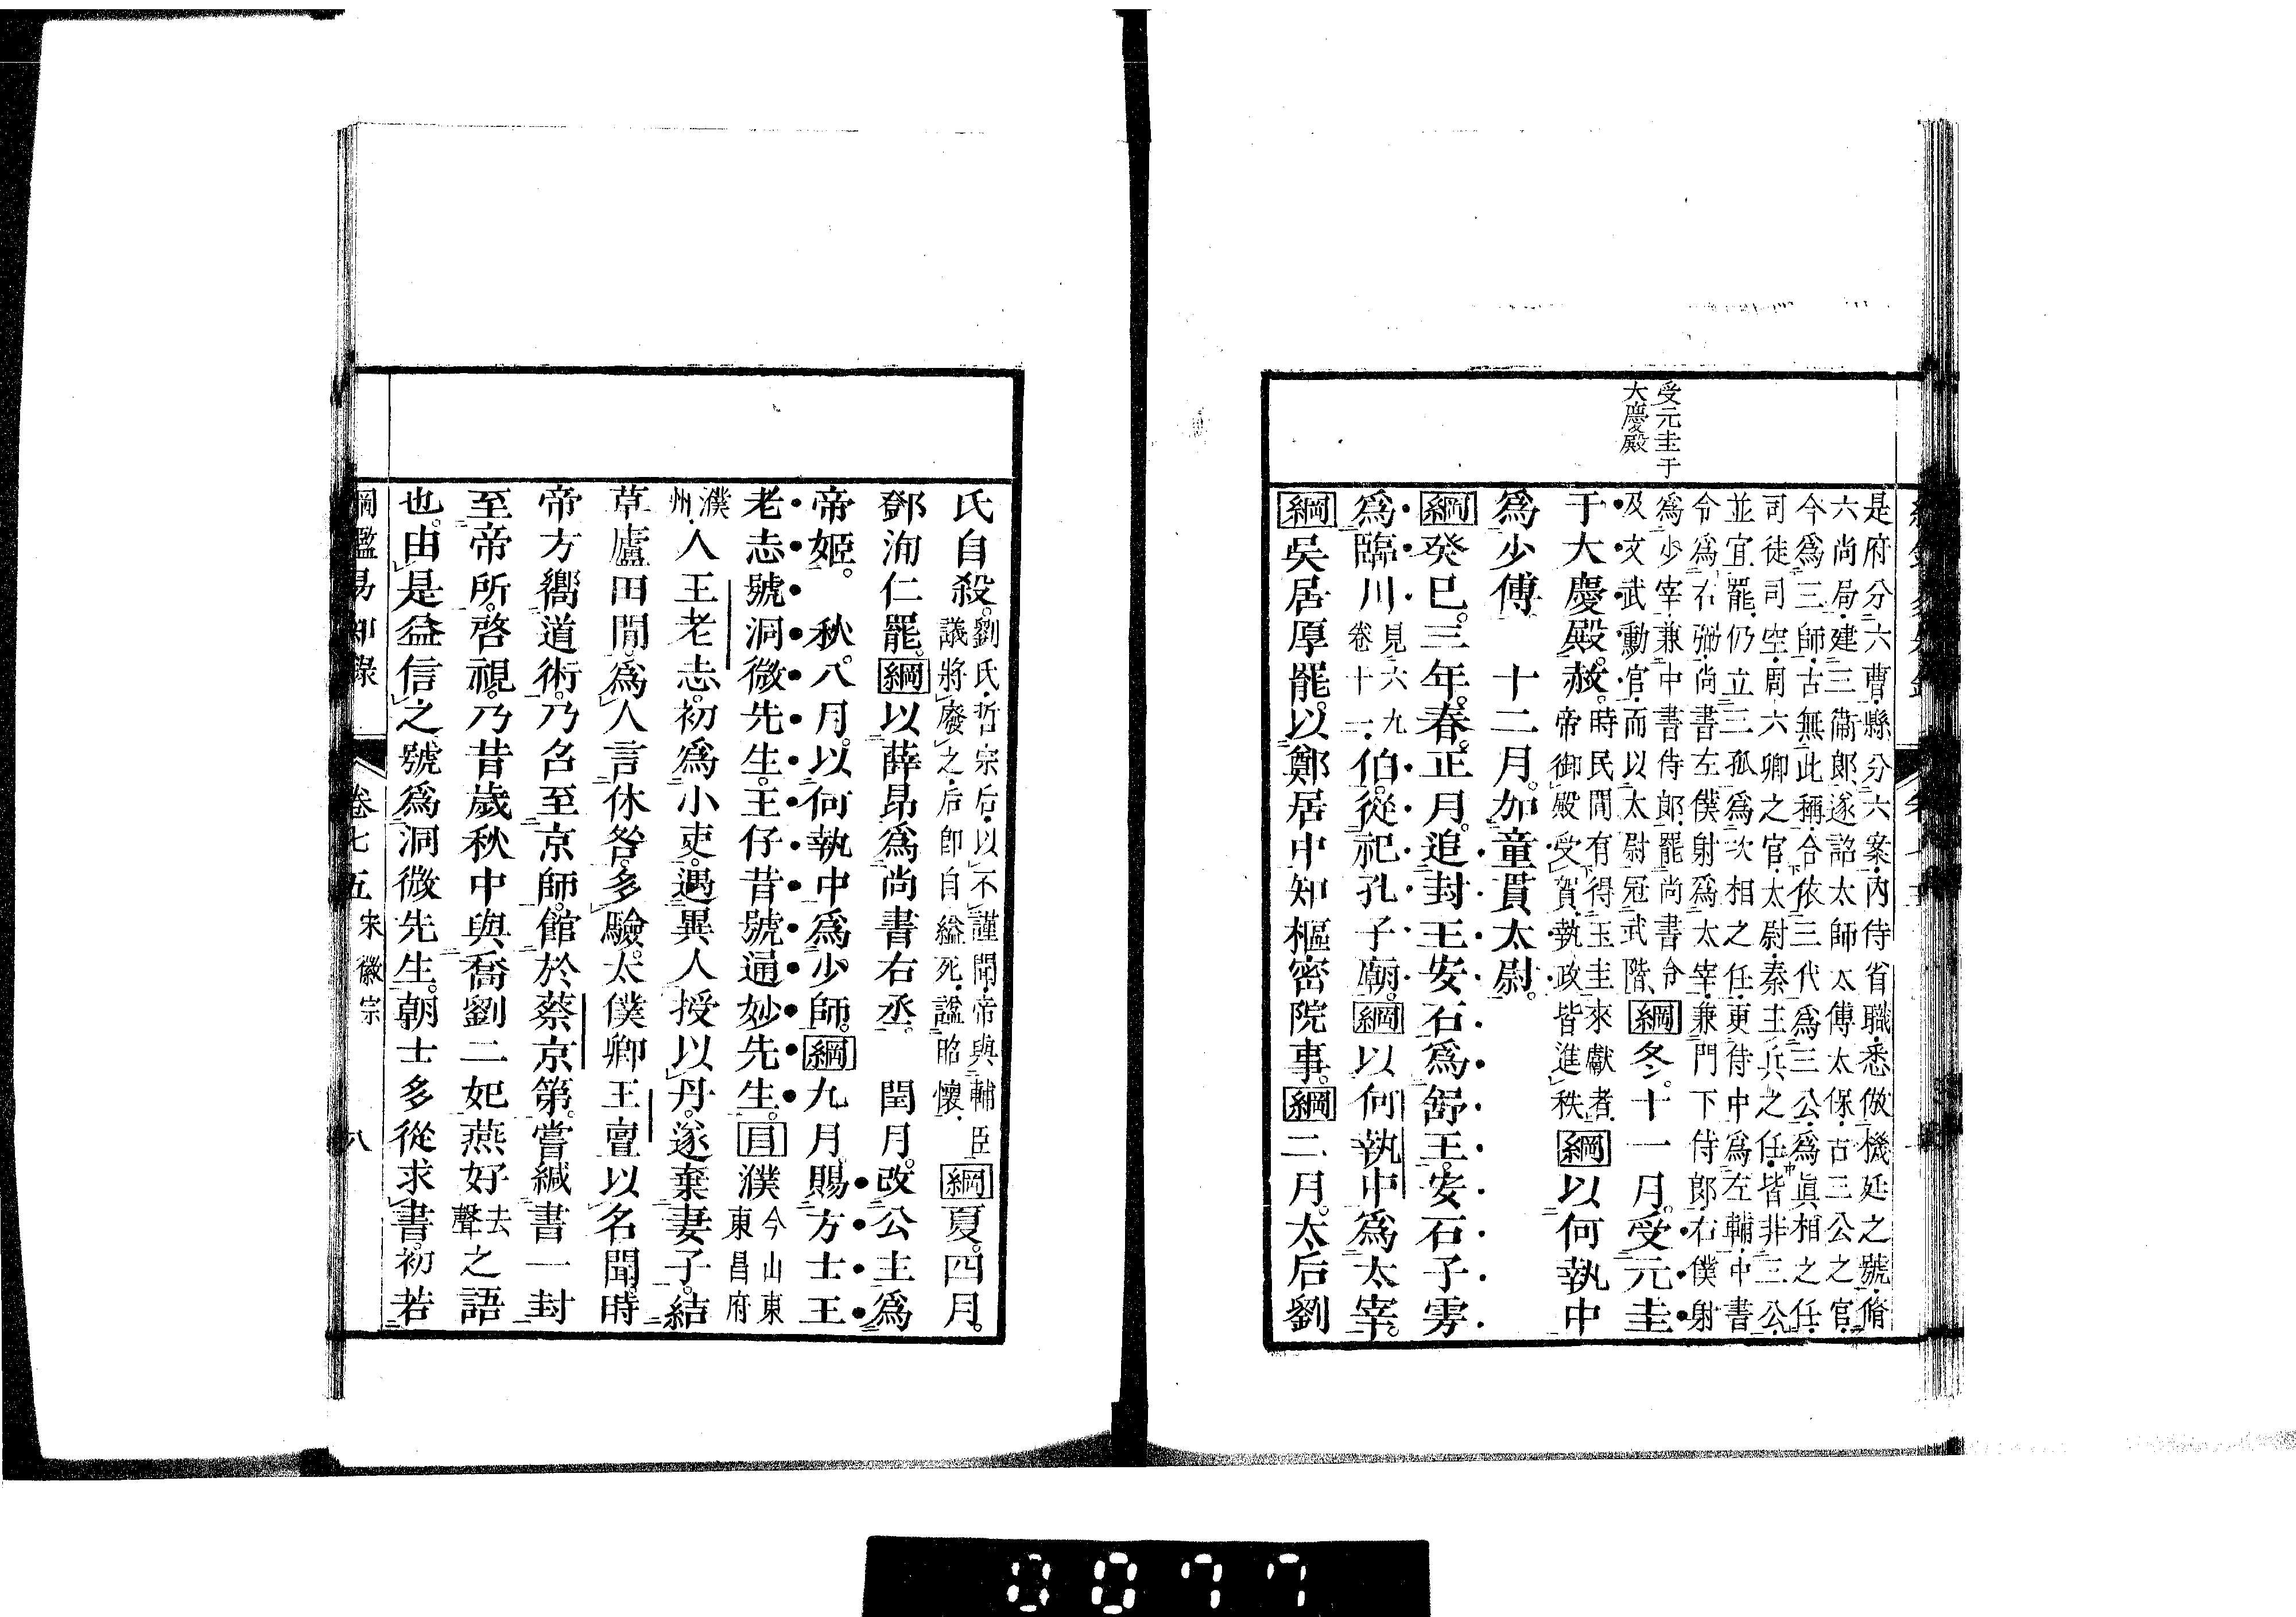 受元圭于
大慶殿
是府分六曹縣分六案內侍省職悉倣機廷之號脩
六尚局建三衞郎遂詔太師太傅太保古三公之官
今為三師古無此稱合依三代為三公為眞相之任
司徒司空周六卿之官太尉秦主兵之任皆非三公
並宜罷仍立三孤為次相之任更侍中為左輔中書
令為右弼尚書左僕射為太宰兼門下侍郎右僕射
為少宰兼中書侍郎罷尚書令
及文武勳官而以太尉冠武階綱冬十一月受元圭
于大慶殿赦時民閒有得玉圭來獻者
帝御殿受賀執政皆進秩綱以何執中
為少傅　十二月加童貫太尉
綱癸巳三年春正月追封王安石為舒王安石子雱
為臨川見六九
卷十一伯從祀孔子廟綱以何執中為太宰
綱吳居厚罷以鄭居中知樞密院事綱二月太后劉
氏自殺劉氏哲宗后以不謹聞帝與輔臣
議將廢之后卽自縊死諡昭懷綱夏四月
鄧洵仁罷綱以薛昂為尚書右丞　閏月改公主為
帝姬　秋八月以何執中為少師綱九月賜方士王
老志號洞微先生王仔昔號通妙先生目濮今山東
東昌府
濮
州人王老志初為小吏遇異人授以丹遂棄妻子結
草廬田閒為人言休咎多驗太僕卿王亶以名聞時
帝方嚮道術乃召至京師館於蔡京第嘗緘書一封
至帝所啓視乃昔歲秋中與喬劉二妃燕好去
聲之語
也由是益信之號為洞微先生朝士多從求書初若
綱鑑易知錄　卷七五　宋徽宗　八
0077